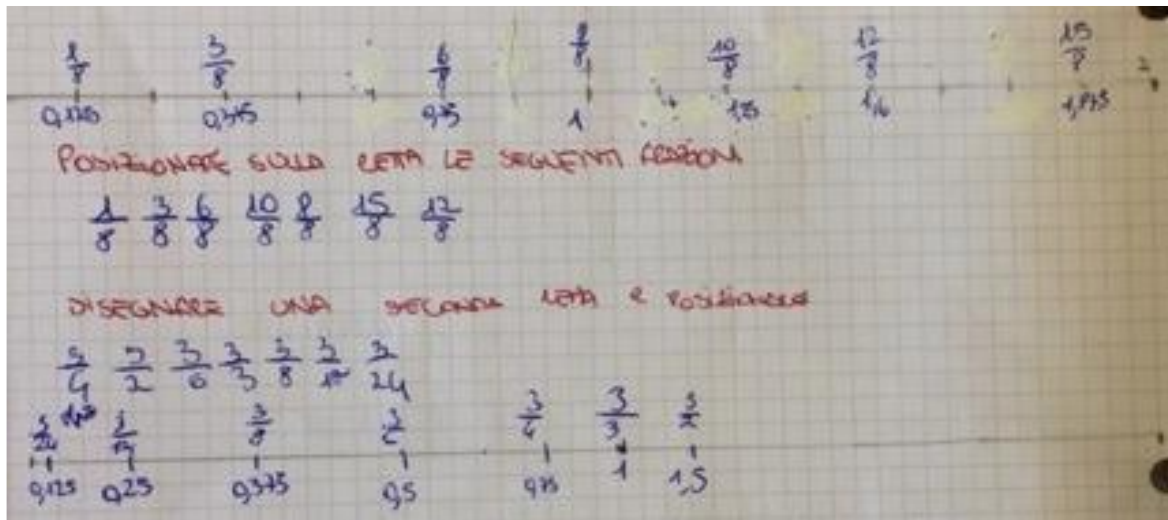 1/8 3/8 6/8 8/8 10/8 12/8 15/8 2
0,125 0,375 0,75 1 1,25 1,6 1,875
POSIZIONARE SULLA RETTA LE SEGUENTI FRAZIONI
1/8 3/8 6/8 10/8 8/8 15/8 12/8
DISEGNARE UNA SECONDA RETTA E POSIZIONARE
3/4 3/2 3/6 3/3 3/8 3/12 3/24
3/24 3/12 3/8 3/6 3/4 3/3 3/2
0,125 0,25 0,375 0,5 0,75 1 1,5